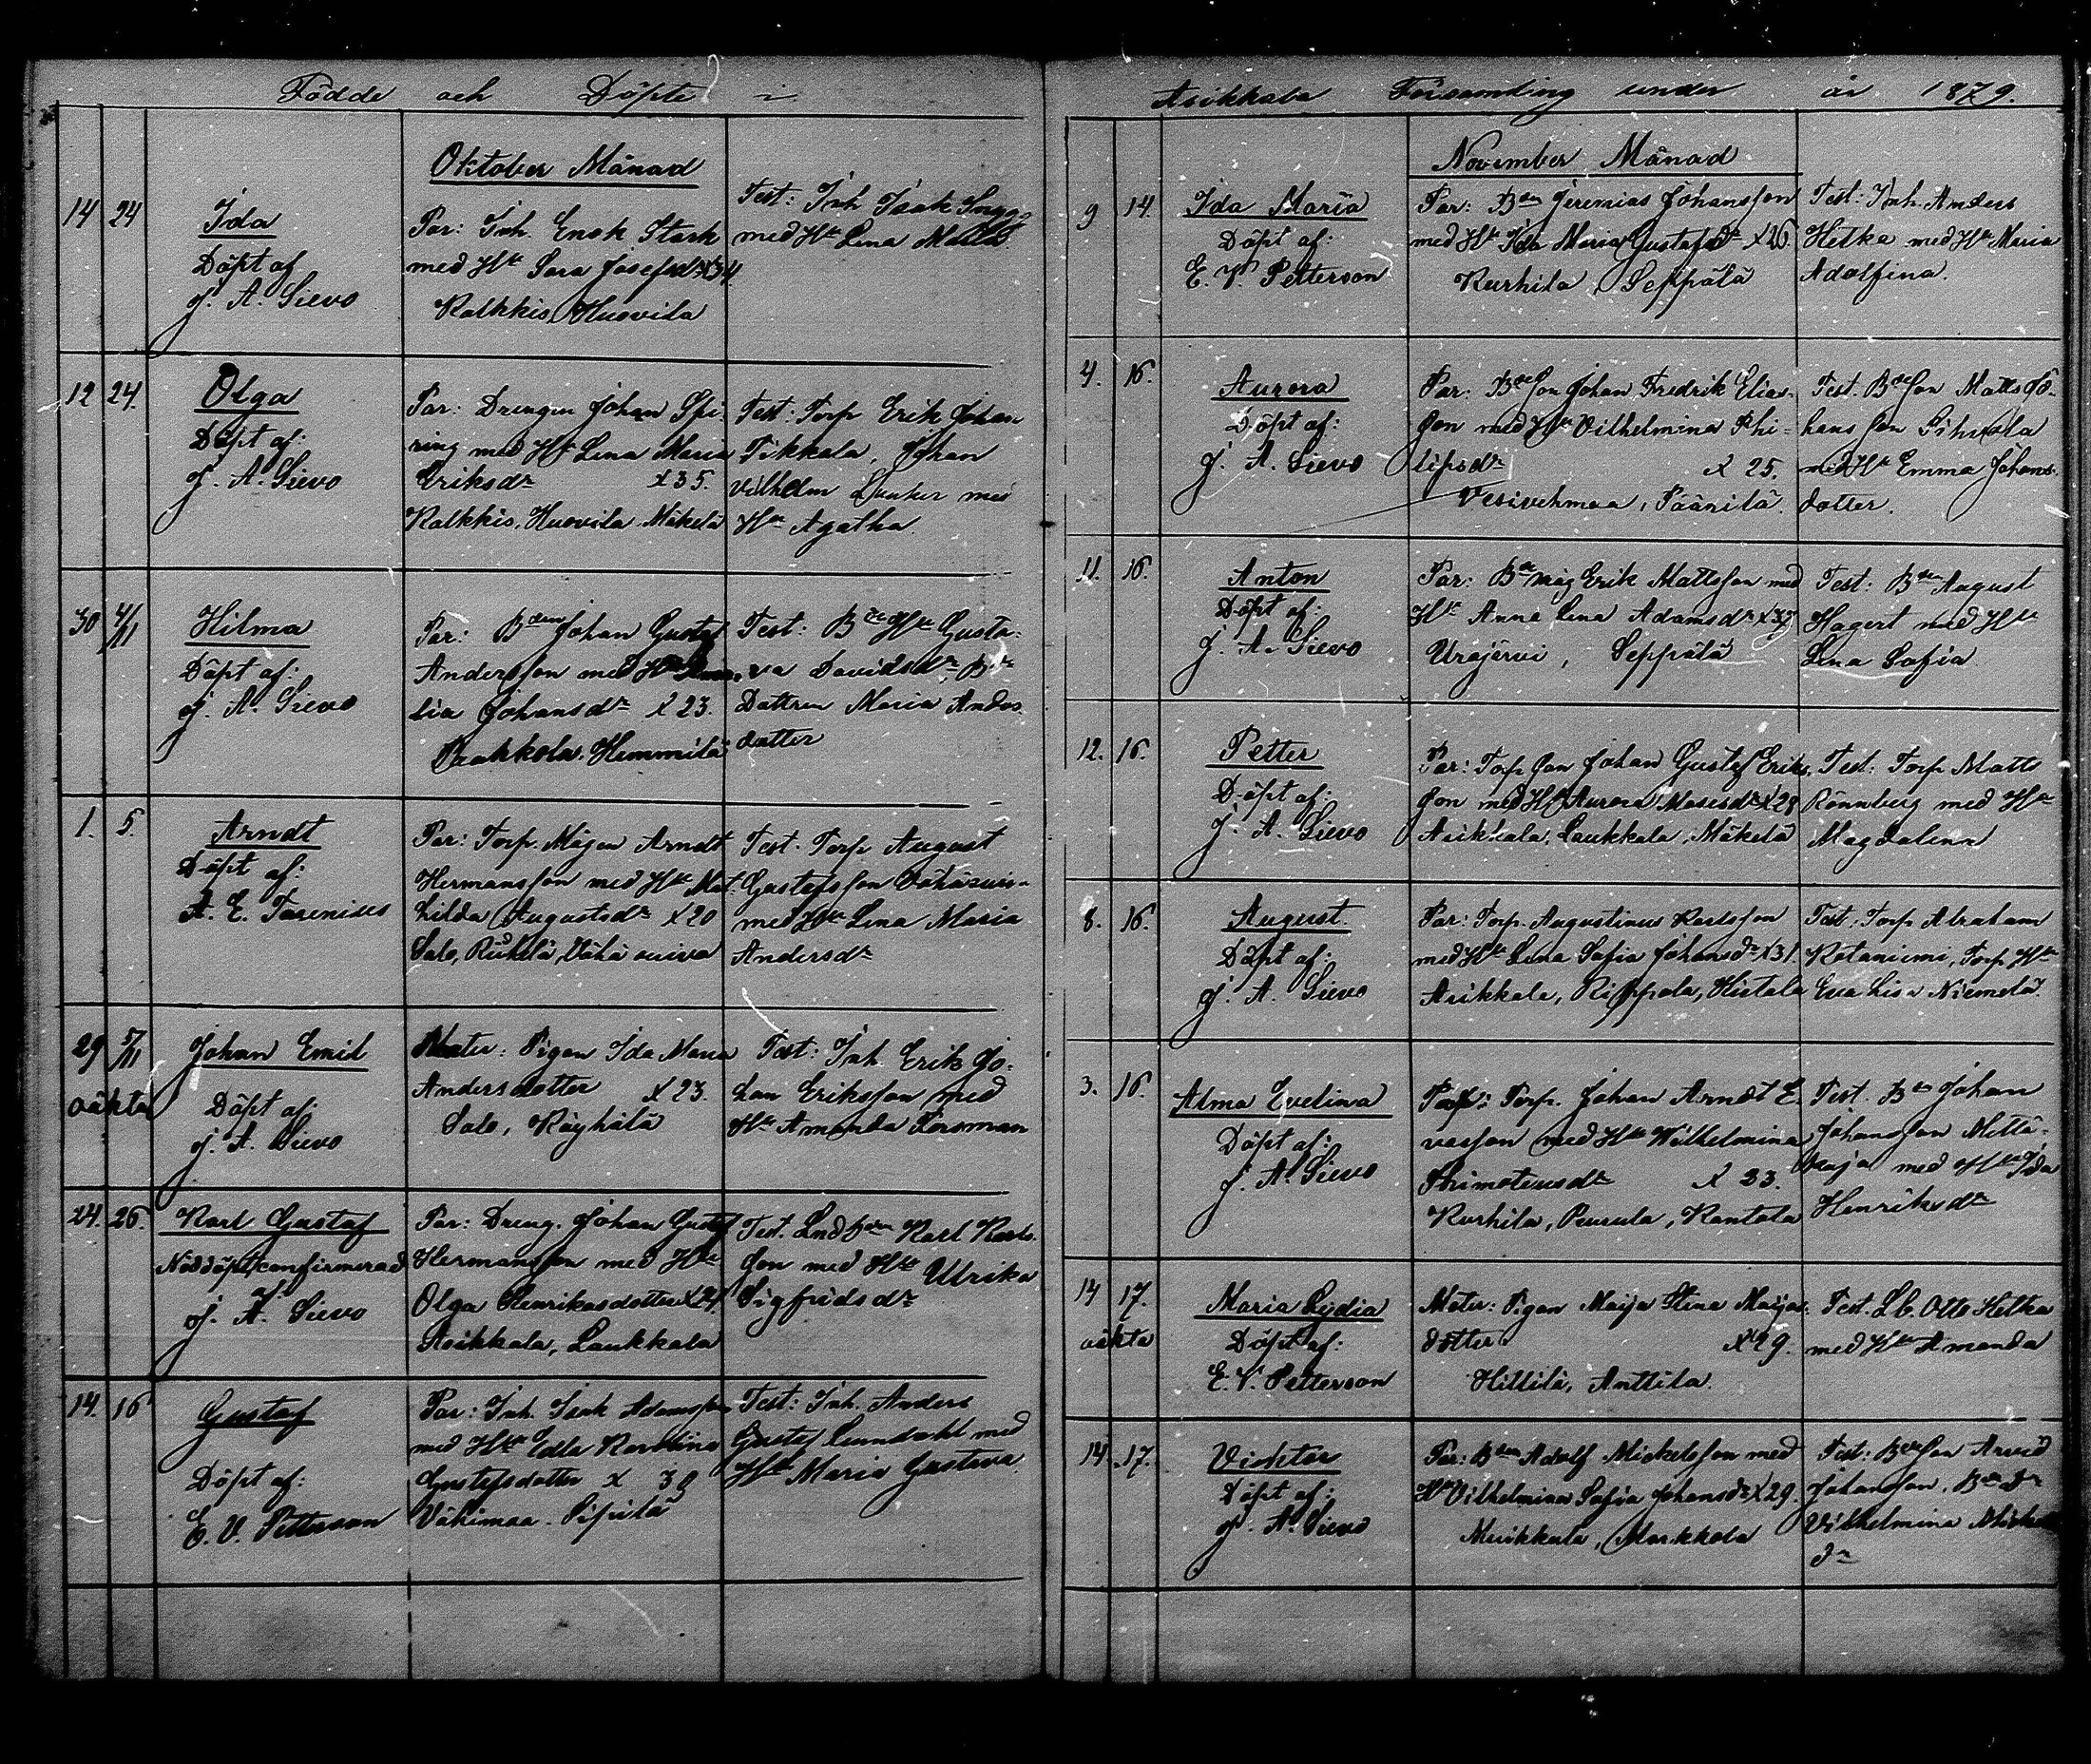 Födde och Döpte i
Oktober Månad
14 24 Ida
Döpt af
J. A. Sievo
Par: Inh. Enok Stark
med Hu Sara Josefsdr x 34.
Kalkkis, Huovila
Test: Inh Isak
med Hu Lena
12 24. Olga
Döpt af:
J. A. Sievo
Par: Drengen Johan Spi-
ring med Hu Lena Maria
Eriksdr x 35.
Kalkkis, Huovila Mäkelä
Test: Torp Erik Johan
Tikkala, Johan
Vilhelm Lunker med
Hu Agatha.
30 4/11 Hilma
Döpt af:
J. A. Sievo
Par: Bden Johan Gustaf
Andersson med Hu
lia Johansdr x 23.
Hemmilä
Test: Bde Hu Gusta-
va Davidsdr, Bde
Dottren Maria Anders
dotter
1. 5. Arndt
Döpt af:
A. E. Favenius
Par: Torp. Mågen Arndt
Hermansson med Hu Mat-
hilda Augustsdr x 20
Salo, Riihelä, Vähä
Test. Torp August
Gustafsson
med Hu Lena Maria
Andersdr
29 5/11 Johan Emil
oäkta
Döpt af
J. A. Sievo
Mater: Pigan Ida Maria
Andersdotter x 23.
Salo, Räyhälä
Test: Inh. Erik Jo-
han Eriksson med
Hu Amanda Forsman
24. 26. Karl Gustaf
Nöddöpt confirmerad
af
J. A. Sievo
Par: Dreng. Johan Gustaf
Hermansson med Hu
Olga Henriksdotter x 21
Asikkala, Laukkala
Test. Lndbden Karl Karls-
son med Hu Ulrika
Sigfridsdr
14. 16 Gustaf
Döpt af:
E. V. Petterson
Par: Inh. Isak Adamsson
med Hu Edla Karolina
Gustafsdotter x 30
Vähimaa. Sipilä
Test: Inh. Anders
Gustaf Lundahl med
Hu Maria Gustava.
Asikkala Församling under år 1879.
November Månad
9 14. Ida Maria
Döpt af:
E. V. Petterson
Par: Bden Jeremias Johansson
med Hu Ida Maria Gustafsdr x 26.
Kurhila, Seppälä
Test: Inh. Anders
Helka med Hu Maria
Adolfina.
4. 16. Aurora
Döpt af:
J. A. Sievo
Par: Bdeson Johan Fredrik Elias-
son med Hu Vilhelmina Phi-
lipsdr x 25.
Vesivehmaa, Päänilä.
Test. Bdeson Matts Jo-
hansson
med Hu Emma Johans-
dotter.
11. 16. Anton
Döpt af:
J. A. Sievo
Par: Bde måg Erik Mattsson med
Hu Anna Lena Adamsdr x 37
Urajärvi, Seppälä
Test: Bden August
Hagert med Hu
Lena Sofia
12. 16. Petter
Döpt af:
J. A. Sievo
Par: Torp son Johan Gustaf Eriks-
son med Hu Aurora Mosesdr x 28
Asikkala, Laukkala, Mäkelä
Test: Torp Matts
Rönnberg med Hu
Magdalena
8. 16. August.
Döpt af:
J. A. Sievo
Par: Torp. Augustinus Karlsson
med Hu Lena Sofia Johansdr x 31.
Asikkala, Rippola, Hietala
Test: Torp Abraham
Kotaniemi, Torp Hu
Eva Lisa Niemelä.
3. 16. Alma Evelina
Döpt af:
J. A. Sievo
Par: Torp. Johan Arndt E-
vasson med Hu Wilhelmina
Thimoteusdr x 33.
Kurhila, Puurula, Kantola
Test. Bde Johan
Johansson Mettä-
maja med Hu Ida
Henriksdr
14 17. Maria Lydia
oäkta
Döpt af:
E. V. Petterson
Mater: Pigan Maija Stina Maijas-
dotter x 29.
Hillilä, Anttila.
Test. Lb. Otto Helka
med Hu Amanda
14. 17. Viktor
Döpt af:
J. A. Sievo
Par: Bden Adolf Mickelsson med
Hu Vilhelmina Sofia Johansdr x 29.
Muikkula, Markkola
Test: Bdeson Arvid
Johansson, Bde dr
Vilhelmina Mickels
dr